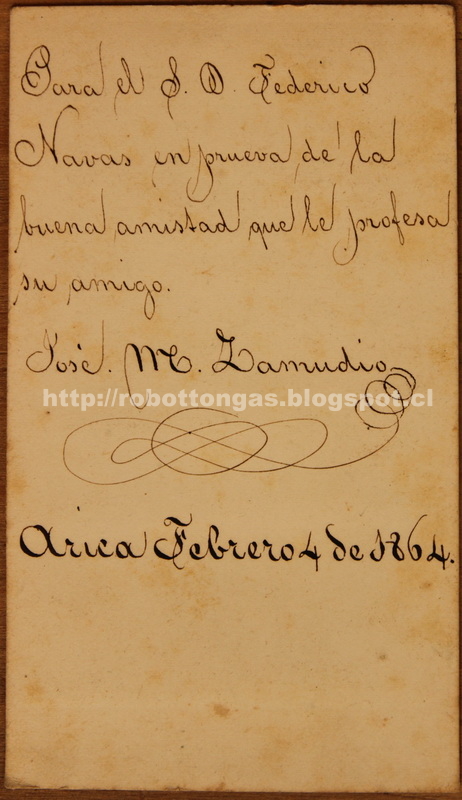 Para el S. D. Federico
Navas en prueva de la
buena amistad que le profesa
su amigo.
José. M. Zamudio
http://robottongas.blogspot.cl
Arica Febrero 4 de 1864.